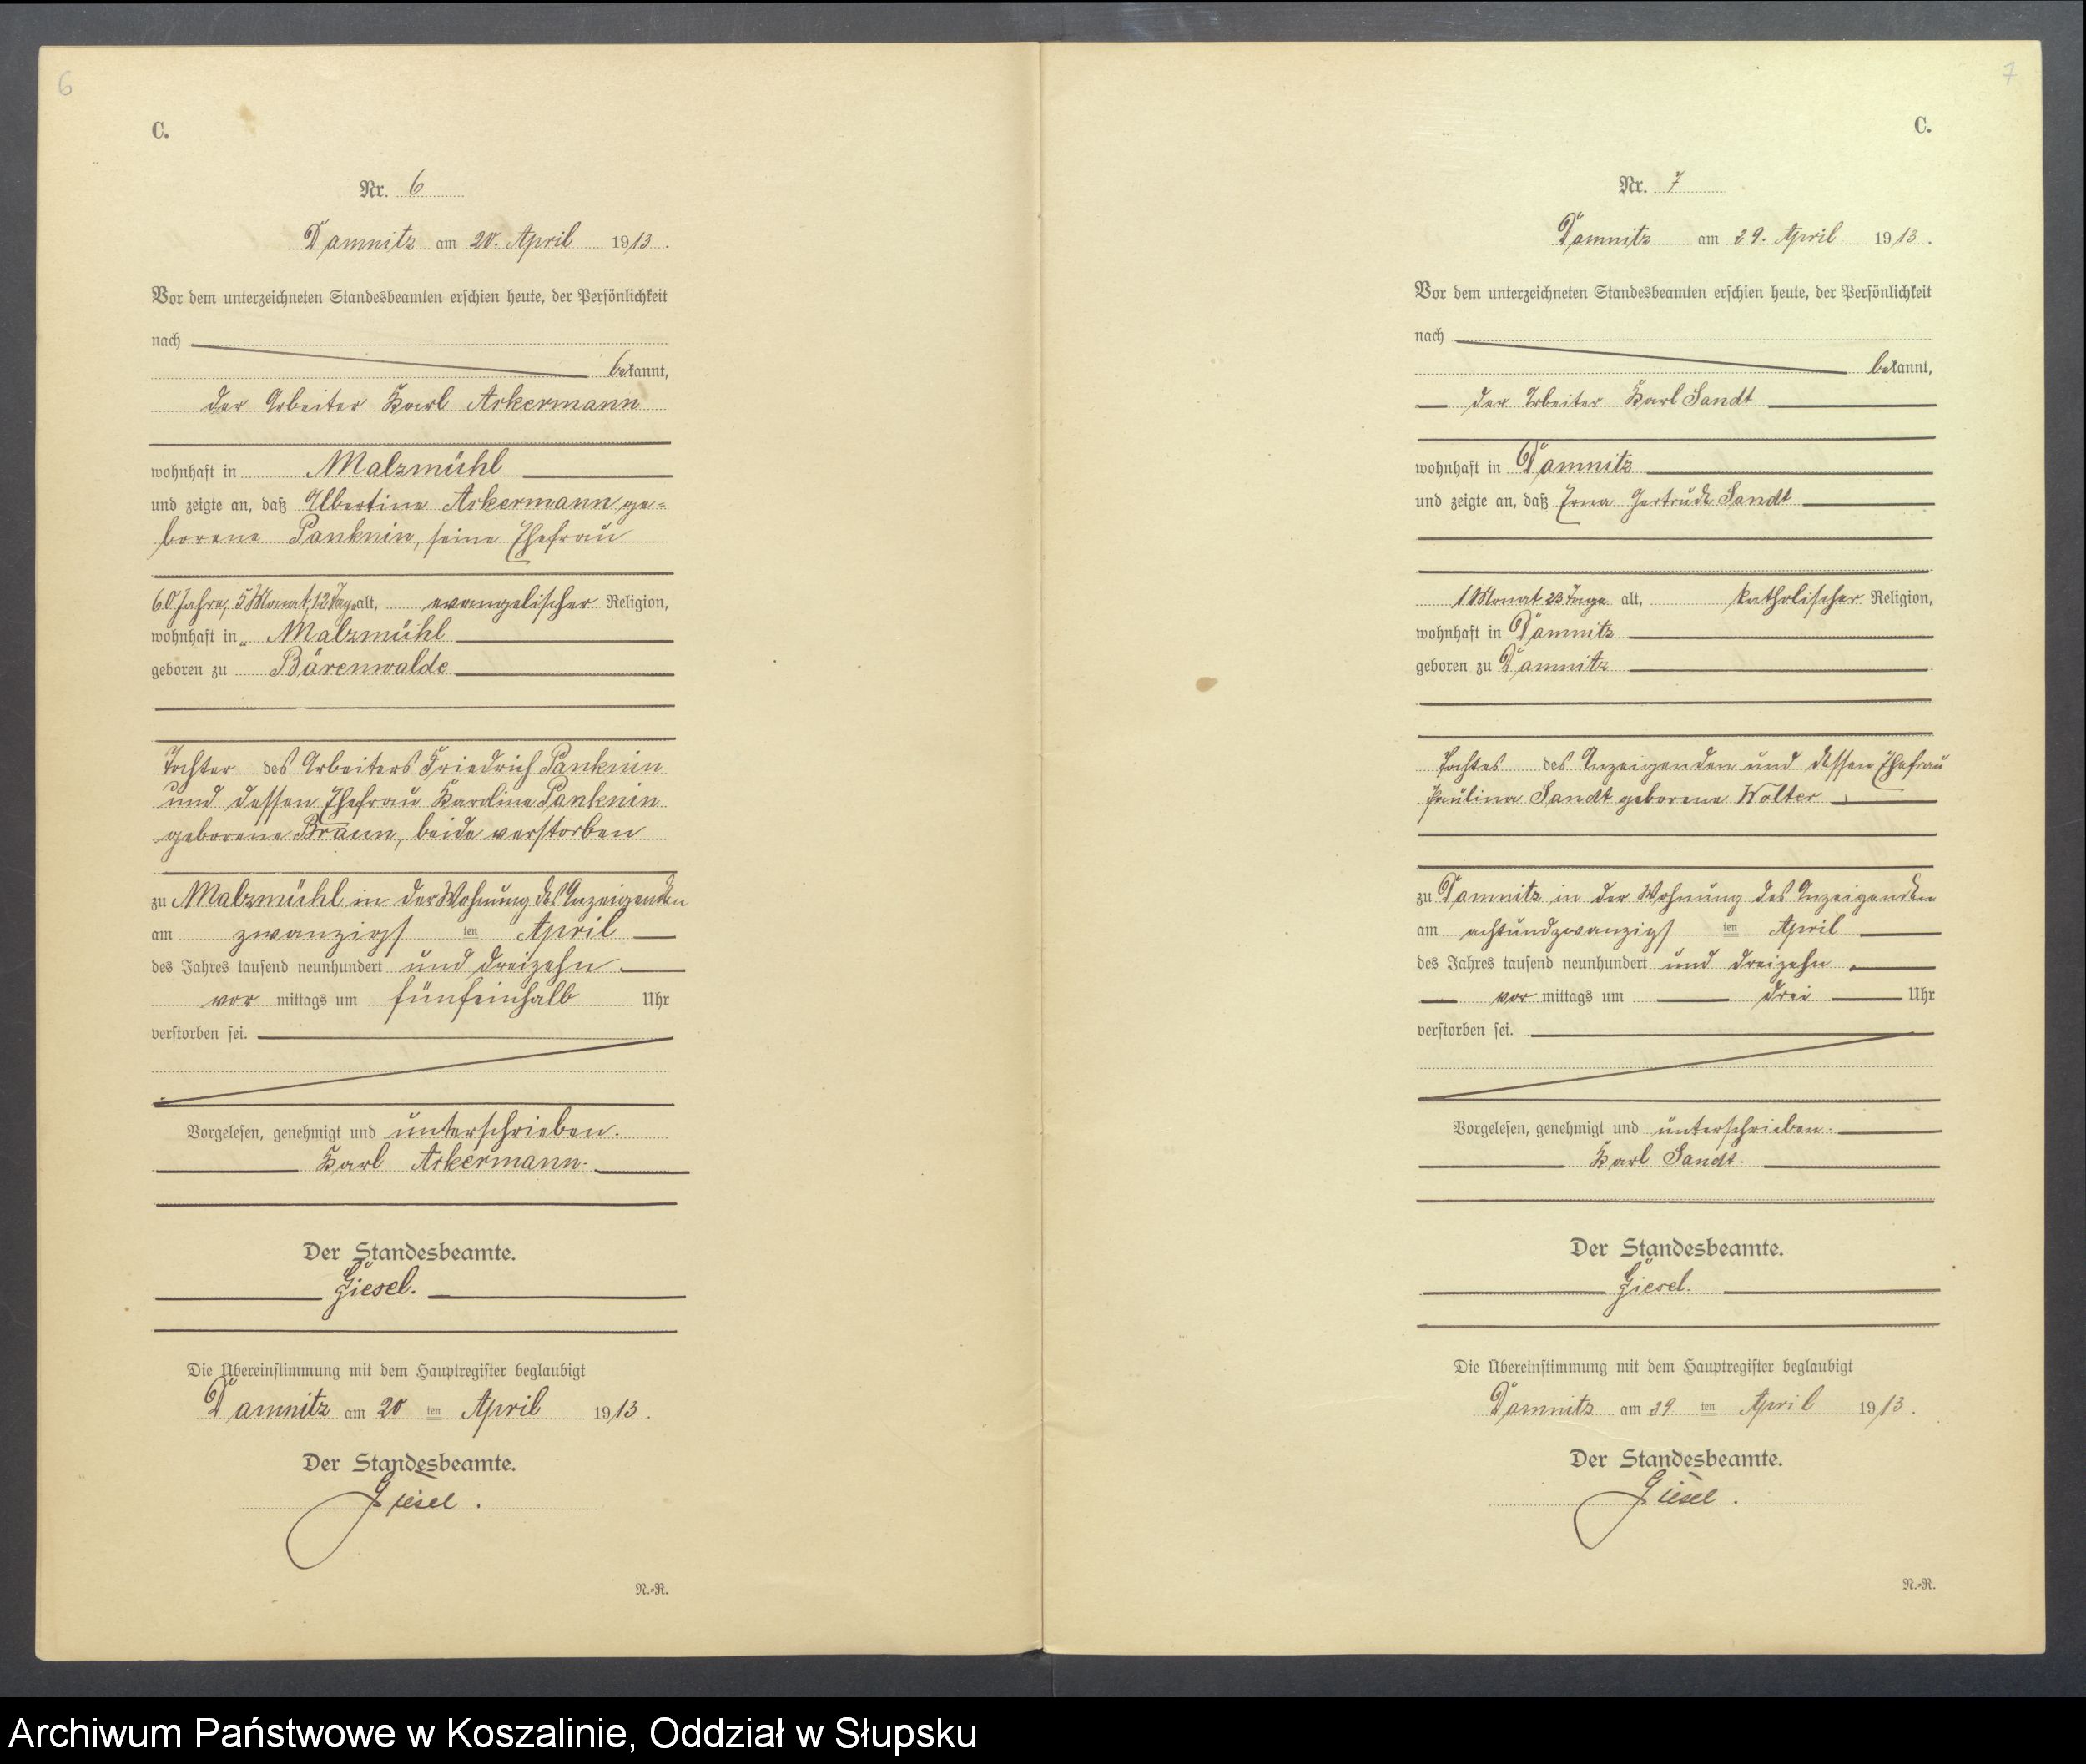 6
C.
Nr. 6
Damnitz am 20. April 1913.
Vor dem unterzeichneten Standesbeamten erschien heute, der Persönlichkeit
nach
bekannt,
der Arbeiter Karl Ackermann
wohnhaft in Malzmühl
und zeigte an, daß Albertine Ackermann ge=
borene Panknin, seine Ehefrau
60 Jahre, 5 Monat, 12 Tage alt, evangelischer Religion,
wohnhaft in Malzmühl
geboren zu Bärenwalde
Tochter des Arbeiters Friedrich Panknin
und dessen Ehefrau Karoline Panknin
geborene Braun, beide verstorben
zu Malzmühl in der Wohnung des Anzeigenden
am zwanzigsten April
des Jahres tausend neunhundert und dreizehn
vor mittags um fünfeinhalb Uhr
verstorben sei.
Vorgelesen, genehmigt und unterschrieben.
Karl Ackermann.
Der Standesbeamte.
Giesel.
Die Übereinstimmung mit dem Hauptregister beglaubigt
Damnitz am 20 ten April 1913.
Der Standesbeamte.
Giesel.
N.-R.
7
C.
Nr. 7
Damnitz am 29. April 1913.
Vor dem unterzeichneten Standesbeamten erschien heute, der Persönlichkeit
nach
bekannt,
der Arbeiter Karl Sandt
wohnhaft in Damnitz
und zeigte an, daß Erna Gertrude Sandt
1 Monat 23 Tage alt, katholischer Religion,
wohnhaft in Damnitz
geboren zu Damnitz
Tochter des Anzeigenden und dessen Ehefrau
Pauline Sandt geborene Wolter
zu Damnitz in der Wohnung des Anzeigenden
am achtundzwanzigsten April
des Jahres tausend neunhundert und dreizehn
vor mittags um drei Uhr
verstorben sei.
Vorgelesen, genehmigt und unterschrieben.
Karl Sandt.
Der Standesbeamte.
Giesel.
Die Übereinstimmung mit dem Hauptregister beglaubigt
Damnitz am 29 ten April 1913.
Der Standesbeamte.
Giesel.
N.-R.
Archiwum Państwowe w Koszalinie, Oddział w Słupsku